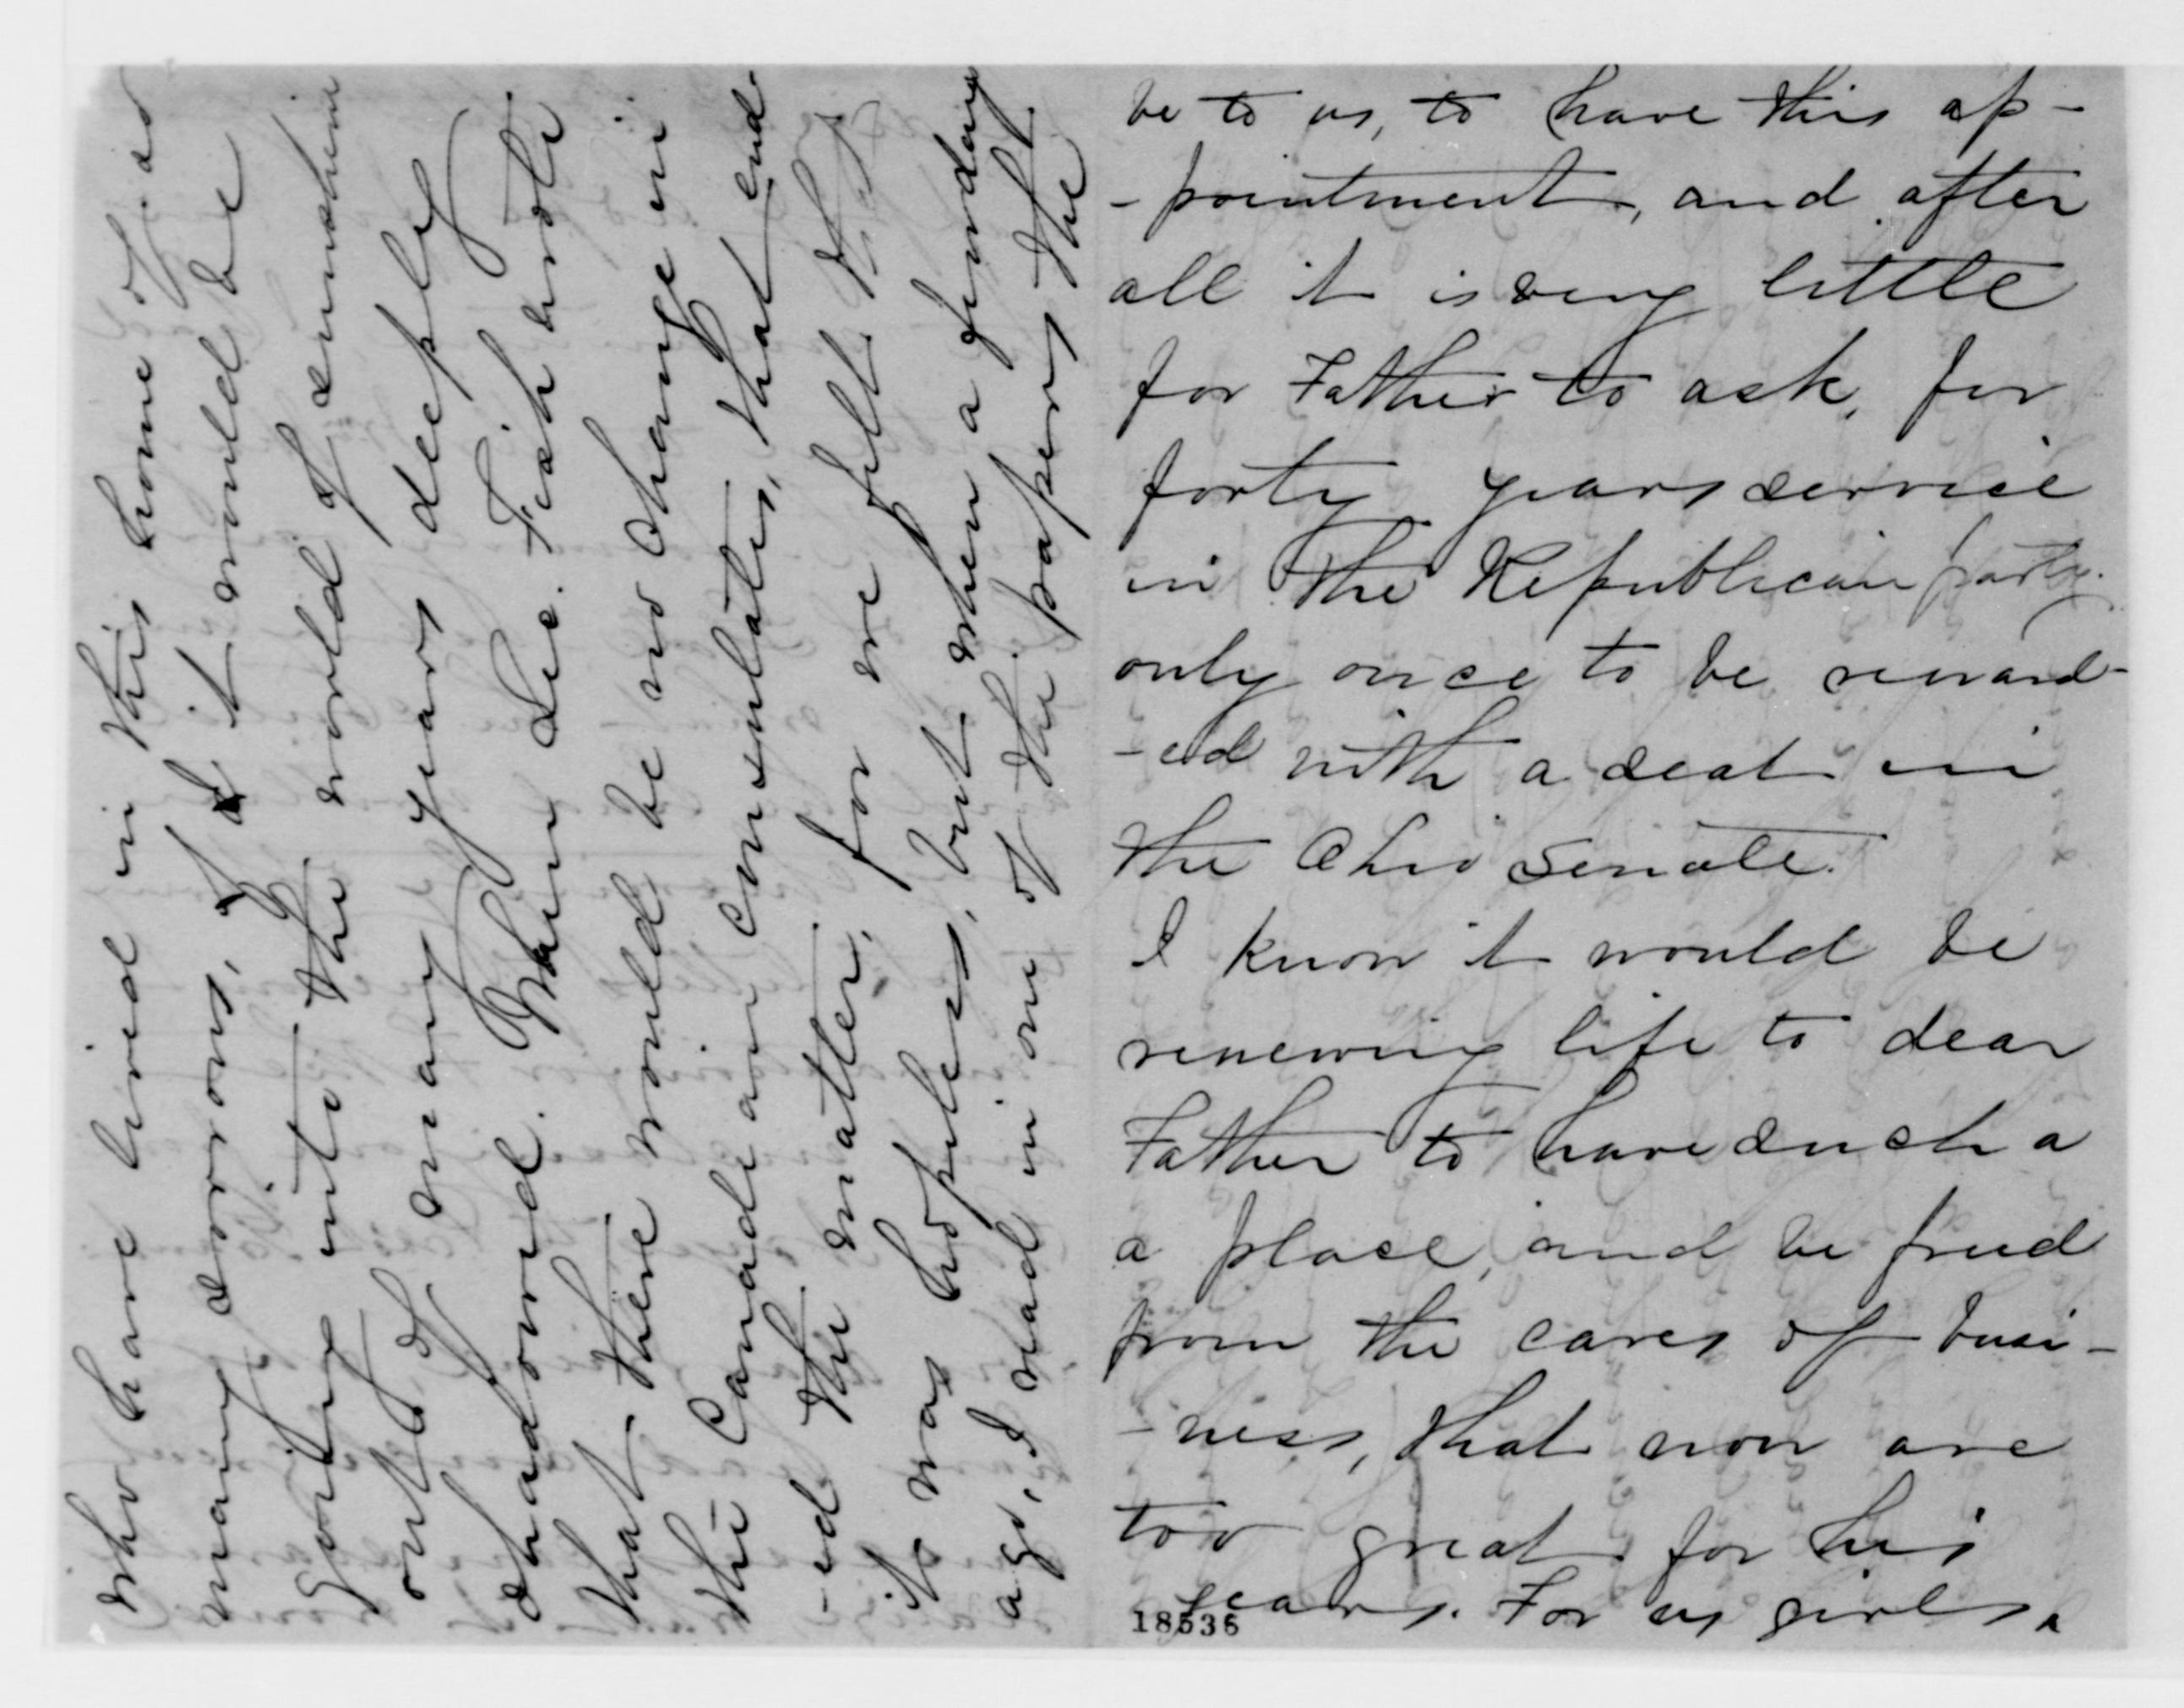 be to us, to have this ap-
-pointment, and after
all it is very little
for Father to ask, for
forty years service
in the Republican party.
only once to be reward-
-ed with a seat in
the Ohio Senate.
I know it would be
renewing life to dear
Father to have such a
a place, and be freed
from the cares of busi-
-ness, that now are
too great for his
years. For us girls,
18536
who have lived in this home of so
many sorrows, if it would be
going into the world of sunshine
out of many years deeply
shadowed. When Sec. Fish wrote
that there would be no change in
the Canadean Consulates, that end-
-ed the matter, for we felt that
it was hopeless, but when a few days
ago, I read in one of the papers the